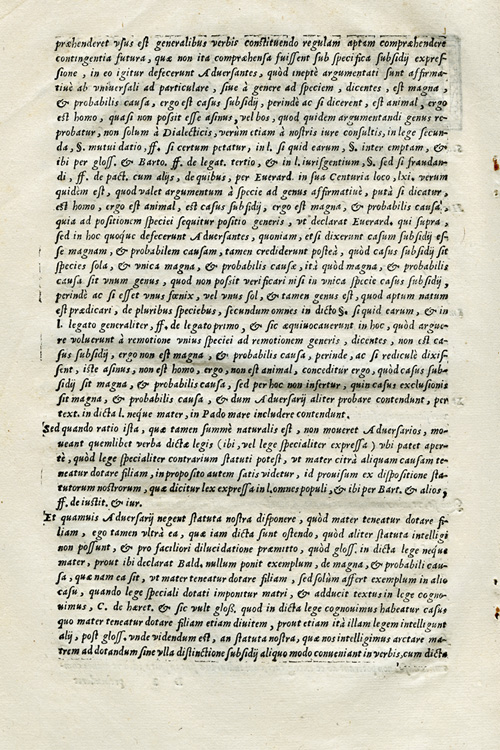 præhenderet vsus est generalibus verbis constituendo regulam aptam compræhendere
contingentia futura, quæ non ita compræhensa fuissent sub specifica subsidij expres-
sione, in eo igitur defecerunt Aduersantes, quòd ineptè argumentati sunt affirma-
tiuè ab vniuersali ad particulare, siue à genere ad speciem, dicentes, est magna,
& probabilis causa, ergo est casus subsidij, perindè ac si dicerent, est animal, ergo
est homo, quasi non possit esse asinus, vel bos, quod quidem argumentandi genus re-
probatur, non solum à Dialecticis, verùm etiam à nostris iure consultis, in lege secun-
da, §. mutui datio, ff. si certum petatur, in l. si quid earum, §. inter emptam, &
ibi per gloss. & Barto. ff. de legat. tertio, & in l. iurisgentium, §. sed si fraudan-
di, ff. de pact. cum alijs, de quibus, per Euerard. in sua Centuria loco, lxi. verum
quidem est, quod valet argumentum à specie ad genus affirmatiuè, putà si dicatur,
est homo, ergo est animal, est casus subsidij, ergo est magna, & probabilis causa,
quia ad positionem speciei sequitur positio generis, vt declarat Euerard. qui supra,
sed in hoc quoque defecerunt Aduersantes, quoniam, etsi dixerunt casum subsidij es-
se magnam, & probabilem causam, tamen crediderunt posteà, quòd casus subsidij sit
species sola, & vnica magnæ, & probabilis causæ, ità quòd magna, & probabilis
causa sit vnum genus, quod non possit verificari nisi in vnica specie casus subsidij,
perindè ac si esset vnus fœnix, vel vnus sol, & tamen genus est, quod aptum natum
est prædicari, de pluribus speciebus, secundum omnes in dicto §. si quid earum, & in
l. legato generaliter, ff. de legato primo, & sic æquiuocauerunt in hoc, quòd argue-
re voluerunt à remotione vnius speciei ad remotionem generis, dicentes, non est ca-
sus subsidij, ergo non est magna, & probabilis causa, perinde, ac si rediculè dixis-
sent, iste asinus, non est homo, ergo, non est animal, conceditur ergo, quòd casus sub-
sidij sit magna, & probabilis causa, sed per hoc non infertur, quin casus exclusionis
sit magna, & probabilis causa, & dum Aduersarij aliter probare contendunt, per
text. in dicta l. neque mater, in Pado mare includere contendunt.
Sed quando ratio ista, quæ tamen summè naturalis est, non moueret Aduersarios, mo-
ueant quemlibet verba dictæ legis (ibi, vel lege specialiter expressa) vbi patet aper-
tè, quòd lege specialiter contrarium statuti potest, vt mater citrà aliquam causam te-
neatur dotare filiam, in proposito autem satis videtur, id prouisum ex dispositione sta-
tutorum nostrorum, quæ dicitur lex expressa in l. omnes populi, & ibi per Bart. & alios,
ff. de iustit. & iur.
Et quamuis Aduersarij negent statuta nostra disponere, quòd mater teneatur dotare fi-
liam, ego tamen vltrà ea, quæ iam dicta sunt ostendo, quòd aliter statuta intelligi
non possunt, & pro faciliori dilucidatione præmitto, quòd gloss. in dicta lege neque
mater, prout ibi declarat Bald. nullum ponit exemplum, de magna, & probabili cau-
sa, quæ nam ea sit, vt mater teneatur dotare filiam, sed solùm affert exemplum in alio
casu, quando lege speciali dotati imponitur matri, & adducit textus in lege cogno-
uimus, C. de hæret. & sic vult gloß. quod in dicta lege cognouimus habeatur casus
quo mater teneatur dotare filiam etiam diuitem, prout etiam ità illam legem intelligunt
alij, post gloss. vnde videndum est, an statuta nostra, quæ nos intelligimus arctare ma-
trem ad dotandum sine vlla distinctione subsidij aliquo modo conueniant in verbis, cum dicta